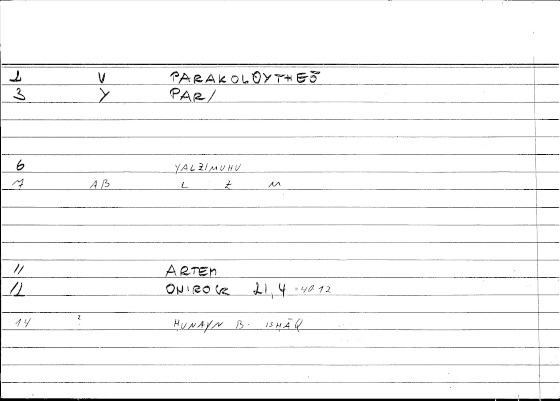 1 V PARAKOLOYTHEŌ
3 Y PAR/
6 YALZIMUHU
7 AB L Z M
11 ARTEM
12 ONIROCR 21,4 = 40.12
14 ? HUNAYN B. ISHĀQ